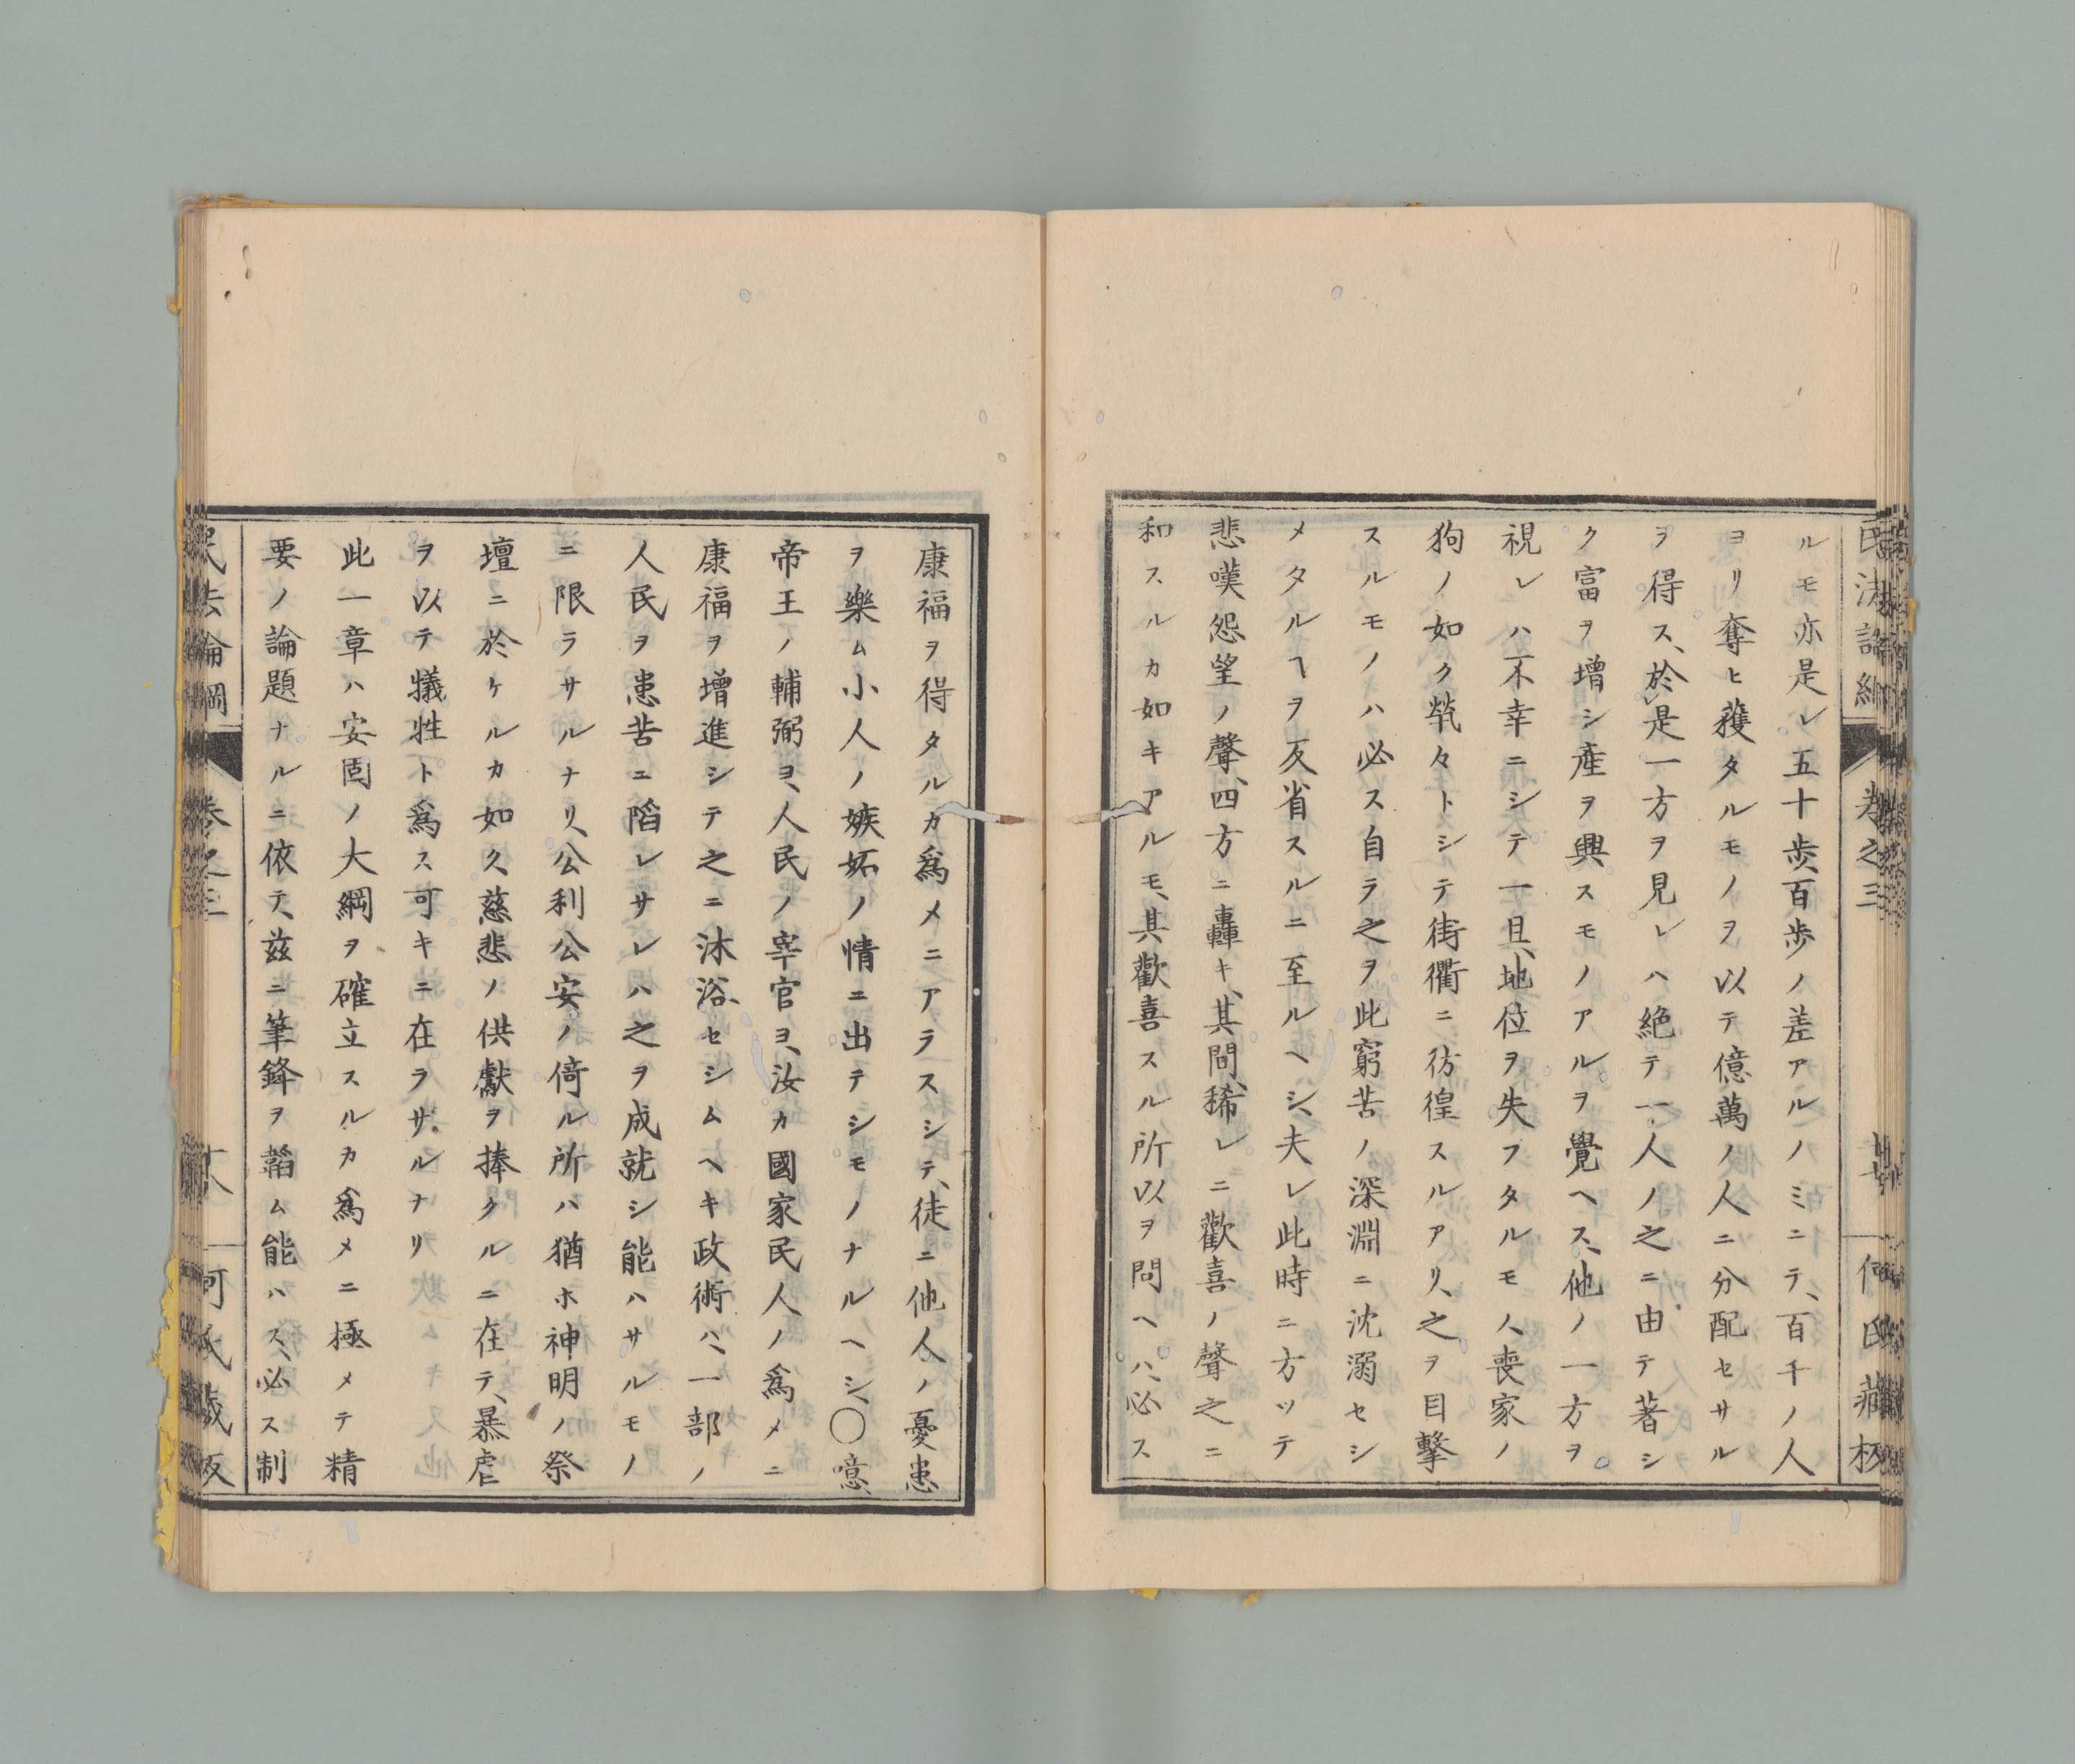 ルモ亦是レ五十歩、百歩ノ差アルノミニテ、百千ノ人
ヨリ奪ヒ獲タルモノヲ以テ億萬ノ人ニ分配セサル
ヲ得ス、於是一方ヲ見レハ絶テ一人ノ之ニ由テ著シ
ク富ヲ増シ産ヲ興スモノアルヲ覺ヘス、他ノ一方ヲ
視レハ不幸ニシテ一旦、地位ヲ失フタルモノ、喪家ノ
狗ノ如ク煢々トシテ街衢ニ彷徨スルアリ、之ヲ目擊
スルモノハ必ス自ラ之ヲ此窮苦ノ深淵ニ沈溺セシ
メタルヿヲ反省スルニ至ルヘシ、夫レ此時ニ方ッテ
悲嘆怨望ノ聲、四方ニ轟キ、其間、稀レニ歡喜ノ聲之ニ
和スルカ如キアルモ、其歡喜スル所以ヲ問ヘハ、必ス
民法論綱 卷之三 何氏藏板
康福ヲ得タルカ爲メニアラスシテ、徒ニ他人ノ憂患
ヲ樂ム小人ノ嫉妬ノ情ニ出テシモノナルヘシ、〇噫
帝王ノ輔弼ヨ、人民ノ宰官ヨ、汝カ國家民人ノ爲メニ
康福ヲ增進シテ之ニ沐浴セシムヘキ政術ハ、一部ノ
人民ヲ患苦ニ陷レサレハ之ヲ成就シ能ハサルモノ
ニ限ラサルナリ、公利公安ノ倚ル所ハ猶ホ神明ノ祭
壇ニ於ケルカ如ク慈悲ノ供獻ヲ捧クルニ在テ、暴虐
ヲ以テ犠牲ト爲ス可キニ在ラサルナリ
此一章ハ安固ノ大綱ヲ確立スルカ爲メニ極メテ精
要ノ論題ナルニ依テ、茲ニ筆鋒ヲ韜ム能ハス、必ス制
民法論綱 卷之三 十八 何氏藏板